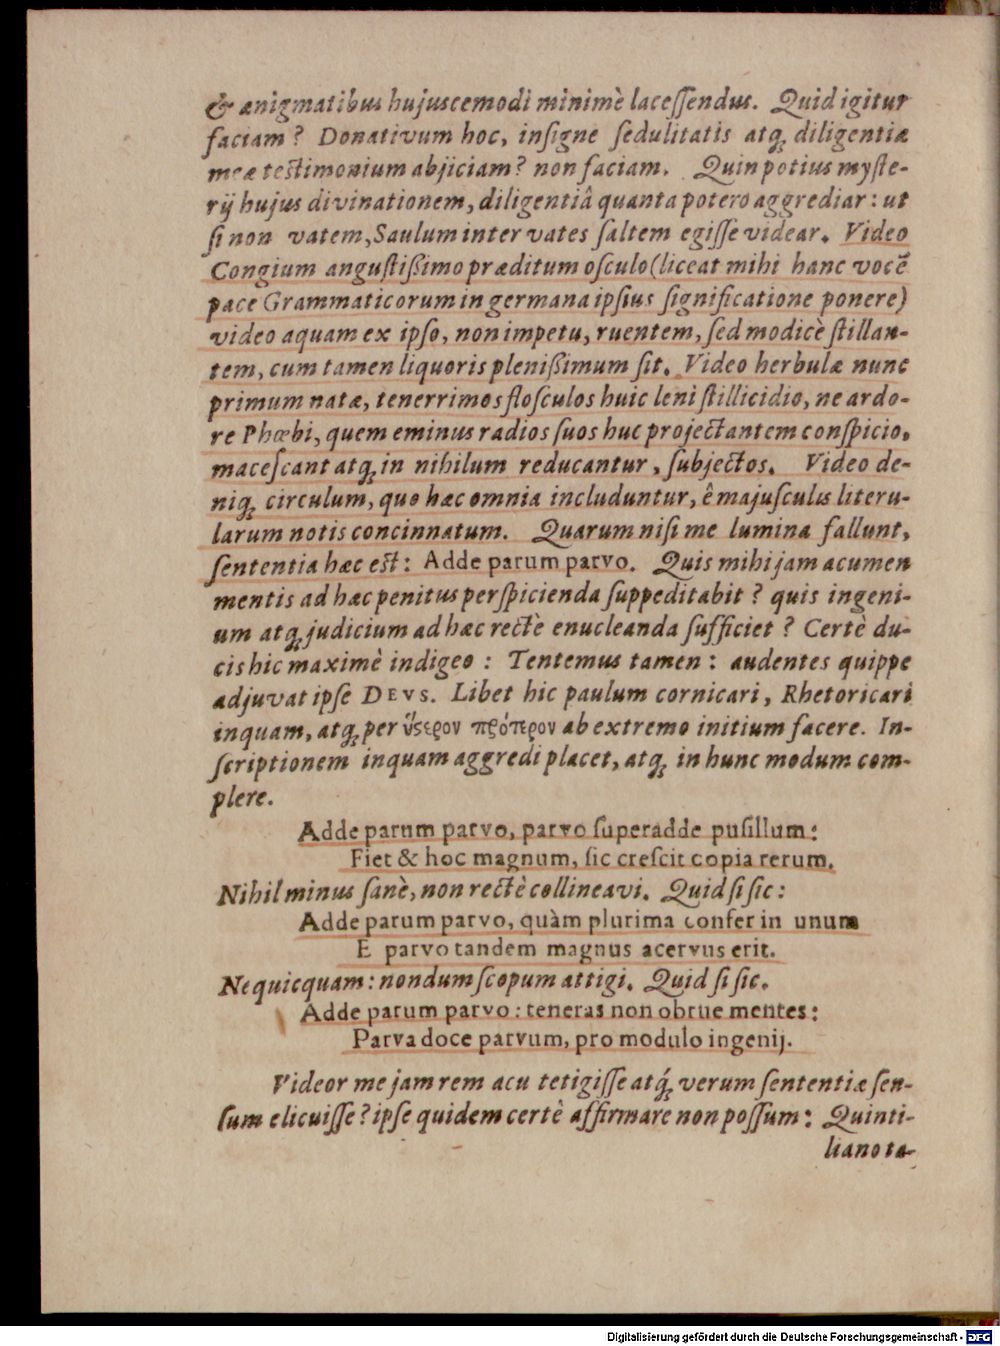 & ænigmatibus hujuscemodi minimè lacessendus. Quid igitur
faciam? Donativum hoc, insigne sedulitatis atq; diligentiæ
meæ testimonium abjiciam? non faciam. Quin potius myste-
rij hujus divinationem, diligentiâ quanta potero aggrediar: ut
si non vatem, Saulum inter vates saltem egisse videar. Video
Congium angustißimo præditum osculo (liceat mihi hanc vocẽ
pace Grammaticorum in germana ipsius significatione ponere)
video aquam ex ipso, non impetu, ruentem, sed modicè stillan-
tem, cum tamen liquoris plenißimum sit. Video herbulæ nunc
primum natæ, tenerrimos flosculos huic leni stillicidio, ne ardo-
re Phœbi, quem eminus radios suos huc projectantem conspicio,
macescant atq; in nihilum reducantur, subjectos. Video de-
niq; circulum, quo hæc omnia includuntur, ê majusculis literu-
larum notis concinnatum. Quarum nisi me lumina fallunt,
sententia hæc est: Adde parum parvo. Quis mihi jam acumen
mentis ad hæc penitus perspicienda suppeditabit? quis ingeni-
um atq; judicium ad hæc rectè enucleanda sufficiet? Certè du-
cis hic maximè indigeo: Tentemus tamen: audentes quippe
adjuvat ipse DEVS. Libet hic paulum cornicari, Rhetoricari
inquam, atq; per ὕςερον πρότερον ab extremo initium facere. In-
scriptionem inquam aggredi placet, atq; in hunc modum com-
plere.
Adde parum parvo, parvo superadde pusillum:
Fiet & hoc magnum, sic crescit copia rerum.
Nihil minus sanè, non rectè collineavi. Quid si sic:
Adde parum parvo, quàm plurima confer in unum
E parvo tandem magnus acervus erit.
Nequicquam: nondum scopum attigi. Quid si sic.
Adde parum parvo: teneras non obrue mentes:
Parva doce parvum, pro modulo ingenij.
Videor me jam rem acu tetigisse atq́; verum sententiæ sen-
sum elicuisse? ipse quidem certè affirmare non possum: Quinti-
liano ta-
Digitalisierung gefördert durch die Deutsche Forschungsgemeinschaft - DFG